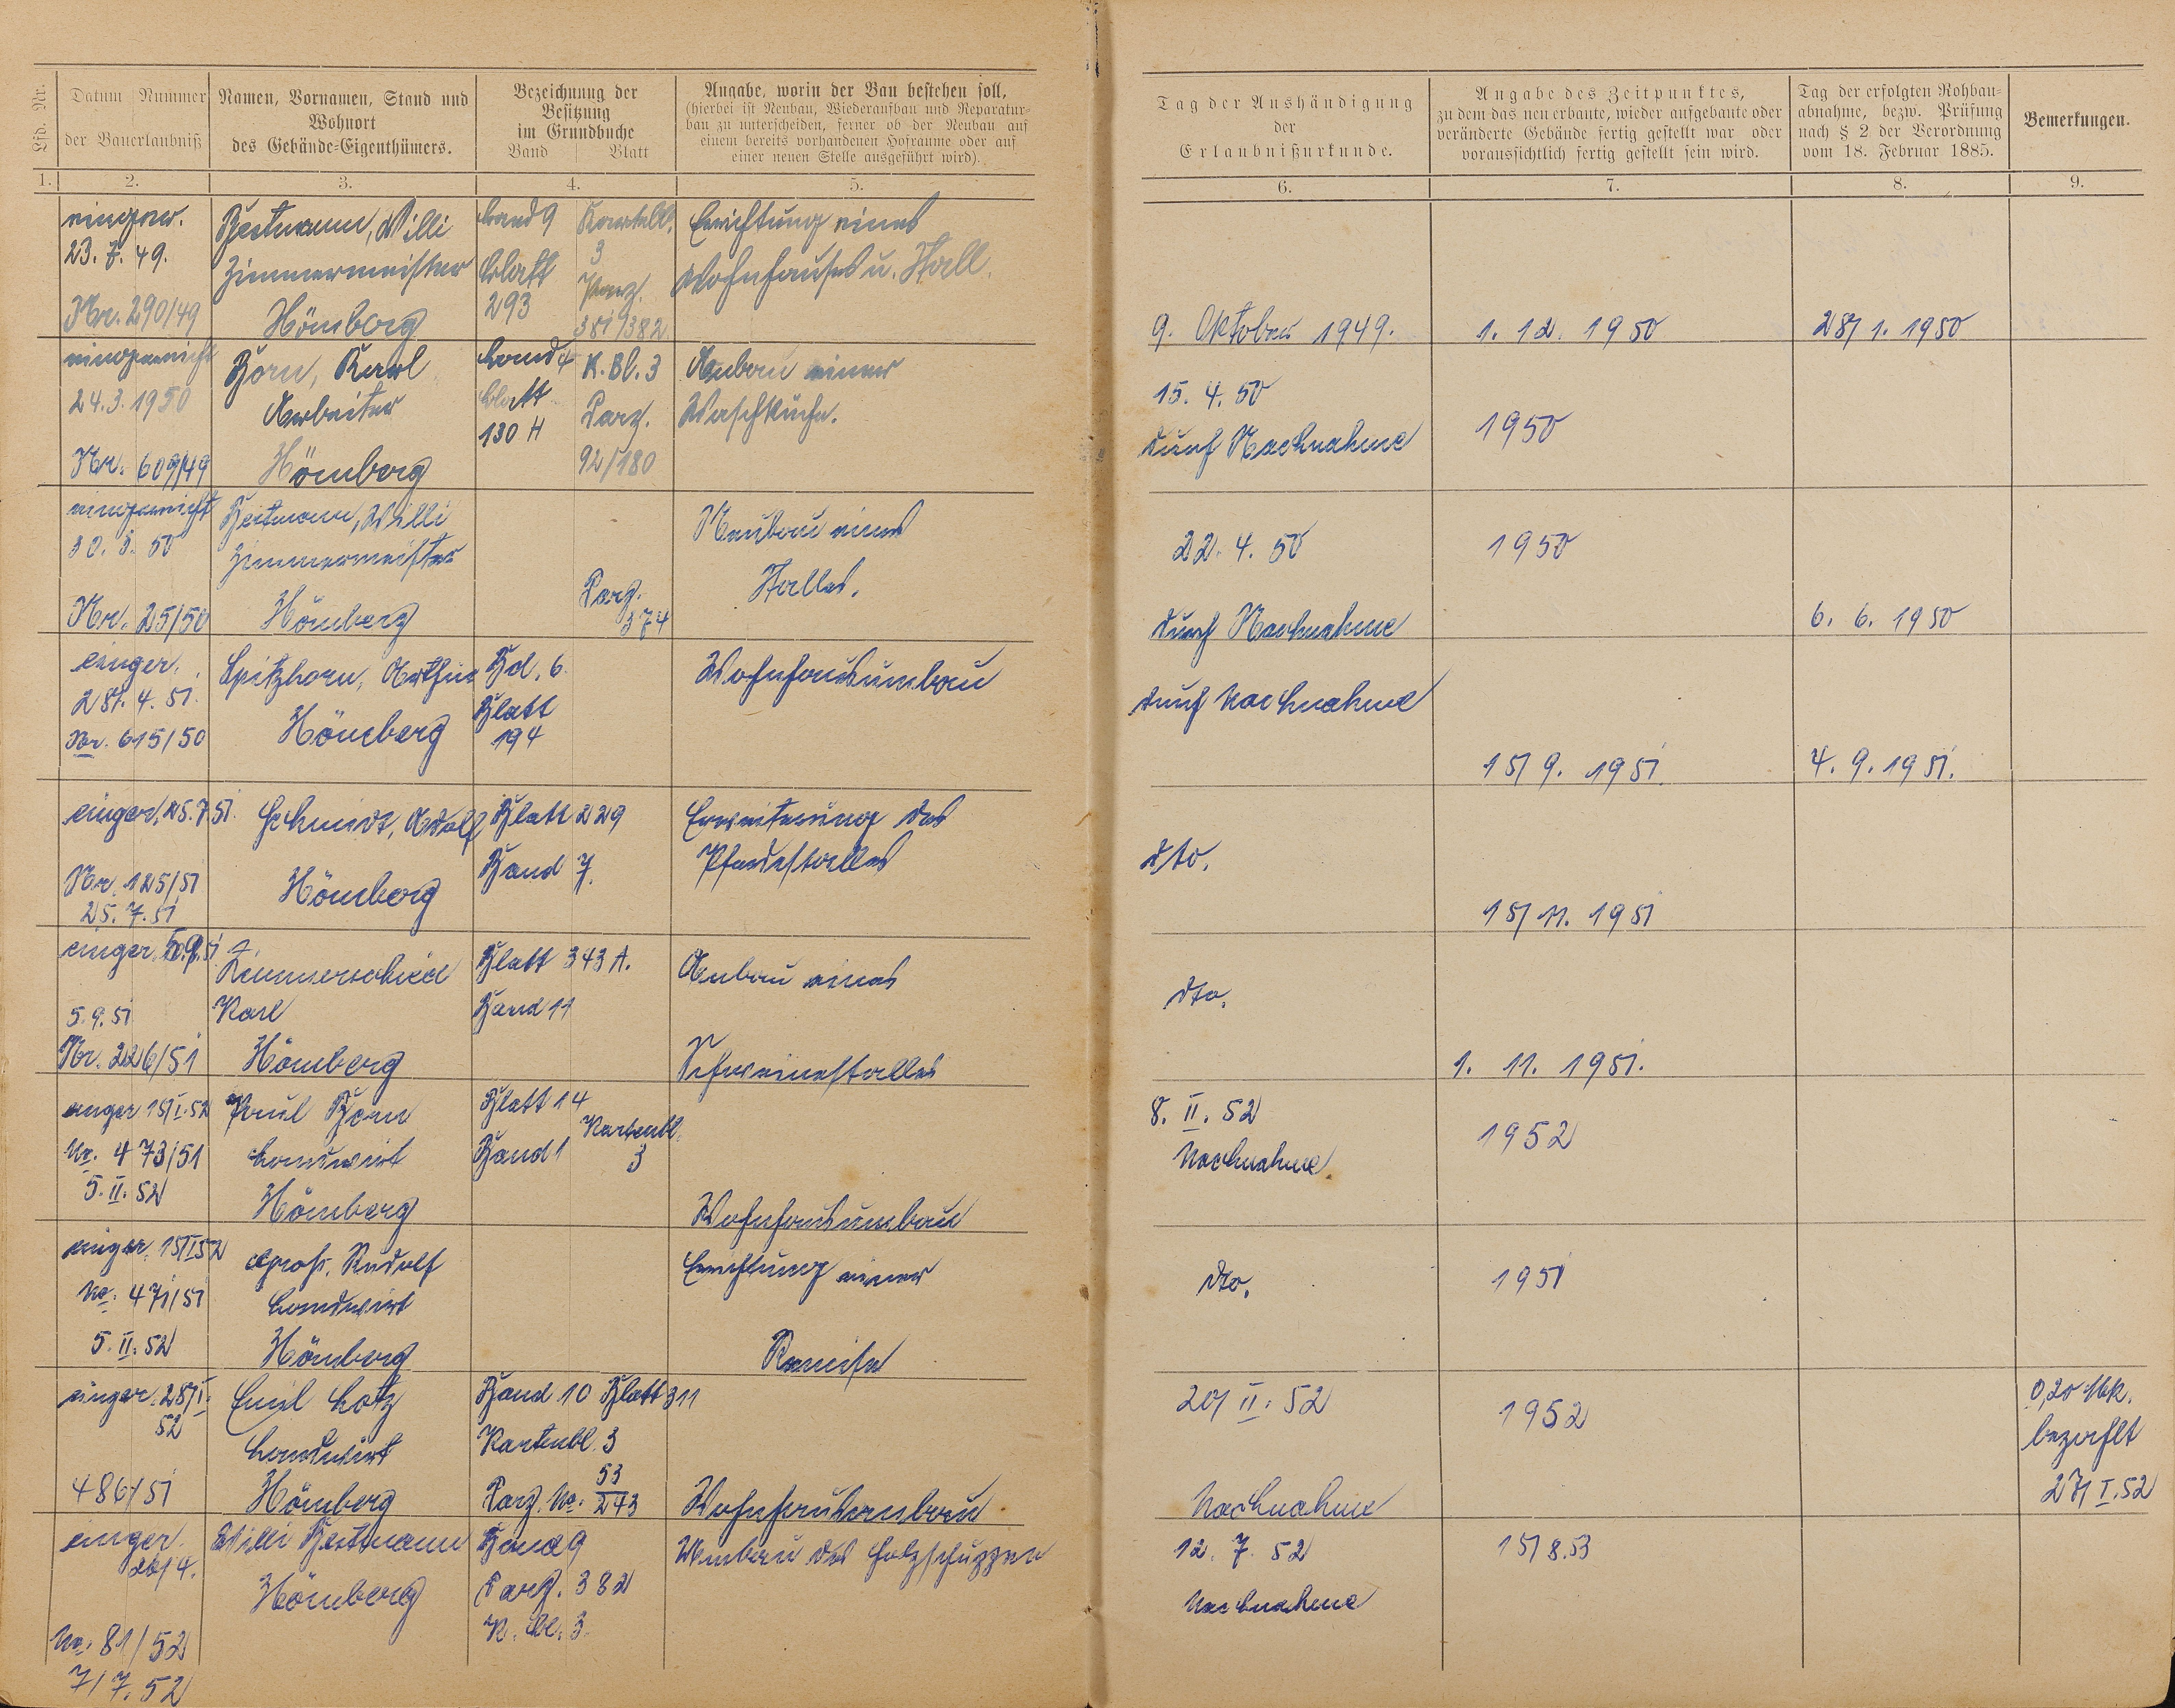 Lfd. Nr.
Datum Nummer
der Bauerlaubniß
Namen, Vornamen, Stand und
Wohnort
des Gebäude-Eigenthümers.
Bezeichnung der
Besitzung
im Grundbuche
Band Blatt
Angabe, worin der Bau bestehen soll,
(hierbei ist Neubau, Wiederaufbau und Reparatur-
bau zu unterscheiden, ferner ob der Neubau auf
einem bereits vorhandenen Hofraume oder auf
einer neuen Stelle ausgeführt wird).
Tag der Aushändigung
der
Erlaubnißurkunde.
Angabe des Zeitpunktes,
zu dem das neu erbaute, wieder aufgebaute oder
veränderte Gebäude fertig gestellt war oder
voraussichtlich fertig gestellt sein wird.
Tag der erfolgten Rohbau-
abnahme, bezw. Prüfung
nach § 2 der Verordnung
vom 18. Februar 1885.
Bemerkungen.
1. 2. 3. 4. 5. 6. 7. 8. 9.
23. 7. 49.
Nr. 290/49
Bestmann, Willi
Zimmermeister
Hömberg
Band 9
Blatt
293
Kartbl.
3
Parz.
381/382.
Errichtung eines
Wohnhauses u. Stall.
9. Oktober 1949.
1. 12. 1950
28/1. 1950
eingereicht
24.3.1950
Nr. 609/49
Born, Karl
Arbeiter
Hömberg
Band 4
Blatt
130 H
K. Bl. 3
Parz.
92/180
Anbau einer
Waschküche.
15. 4. 50
durch Nachnahme
1950
eingereicht
30. 3. 50
Nr. 25/50
Bestmann, Willi
Zimmermeister
Hömberg
Parz.
374
Neubau eines
Stalles.
22. 4. 50
durch Nachnahme
1950
6. 6. 1950
einger.
28/. 4. 51.
Nr. 615/50
Spitzhorn, Arthur
Hömberg
Bd. 6.
Blatt
194
Wohnhausumbau
durch Nachnahme
15/9. 1951.
4. 9. 1951.
einger. 25.7.51.
Nr. 125/51
25. 7. 51
Schmidt, Adolf
Hömberg
Blatt 229
Band 7.
Erweiterung des
Pferdestalles
dto.
15/11. 1951
einger. 5.9.51
5.9.51
Nr. 226/51
Zimmerschied
Karl
Hömberg
Blatt 343 A.
Band 11
Anbau eines
Schweinestalles
dto.
1. 11. 1951.
einger 15/I.52
Nr. 473/51
5. II. 52
Paul Born
Landwirt
Hömberg
Blatt 14
Band 1
Kartenbl.
3
Wohnhausumbau
8. II. 52
Nachnahme
1952
einger. 15/I52
No. 471/51
5. II. 52
Groß, Rudolf
Landwirt
Hömberg
Errichtung einer
Remise
dto.
1951
einger. 28/I.
52
486/51
Emil Lotz
Landwirt
Hömberg
Band 10 Blatt 311
Kartenbl. 3
Parz. No. 53/243
Wohnhausumbau
20/II. 52
Nachnahme
1952
0,20 Mk.
bezahlt
27/I.52
einger.
26/4.
No. 81/52
7/7. 52
Willi Bestmann
Hömberg
Band 9
Parz. 382
K. Bl. 3.
Umbau des Holzschuppen
12. 7. 52
Nachnahme
15/8.53